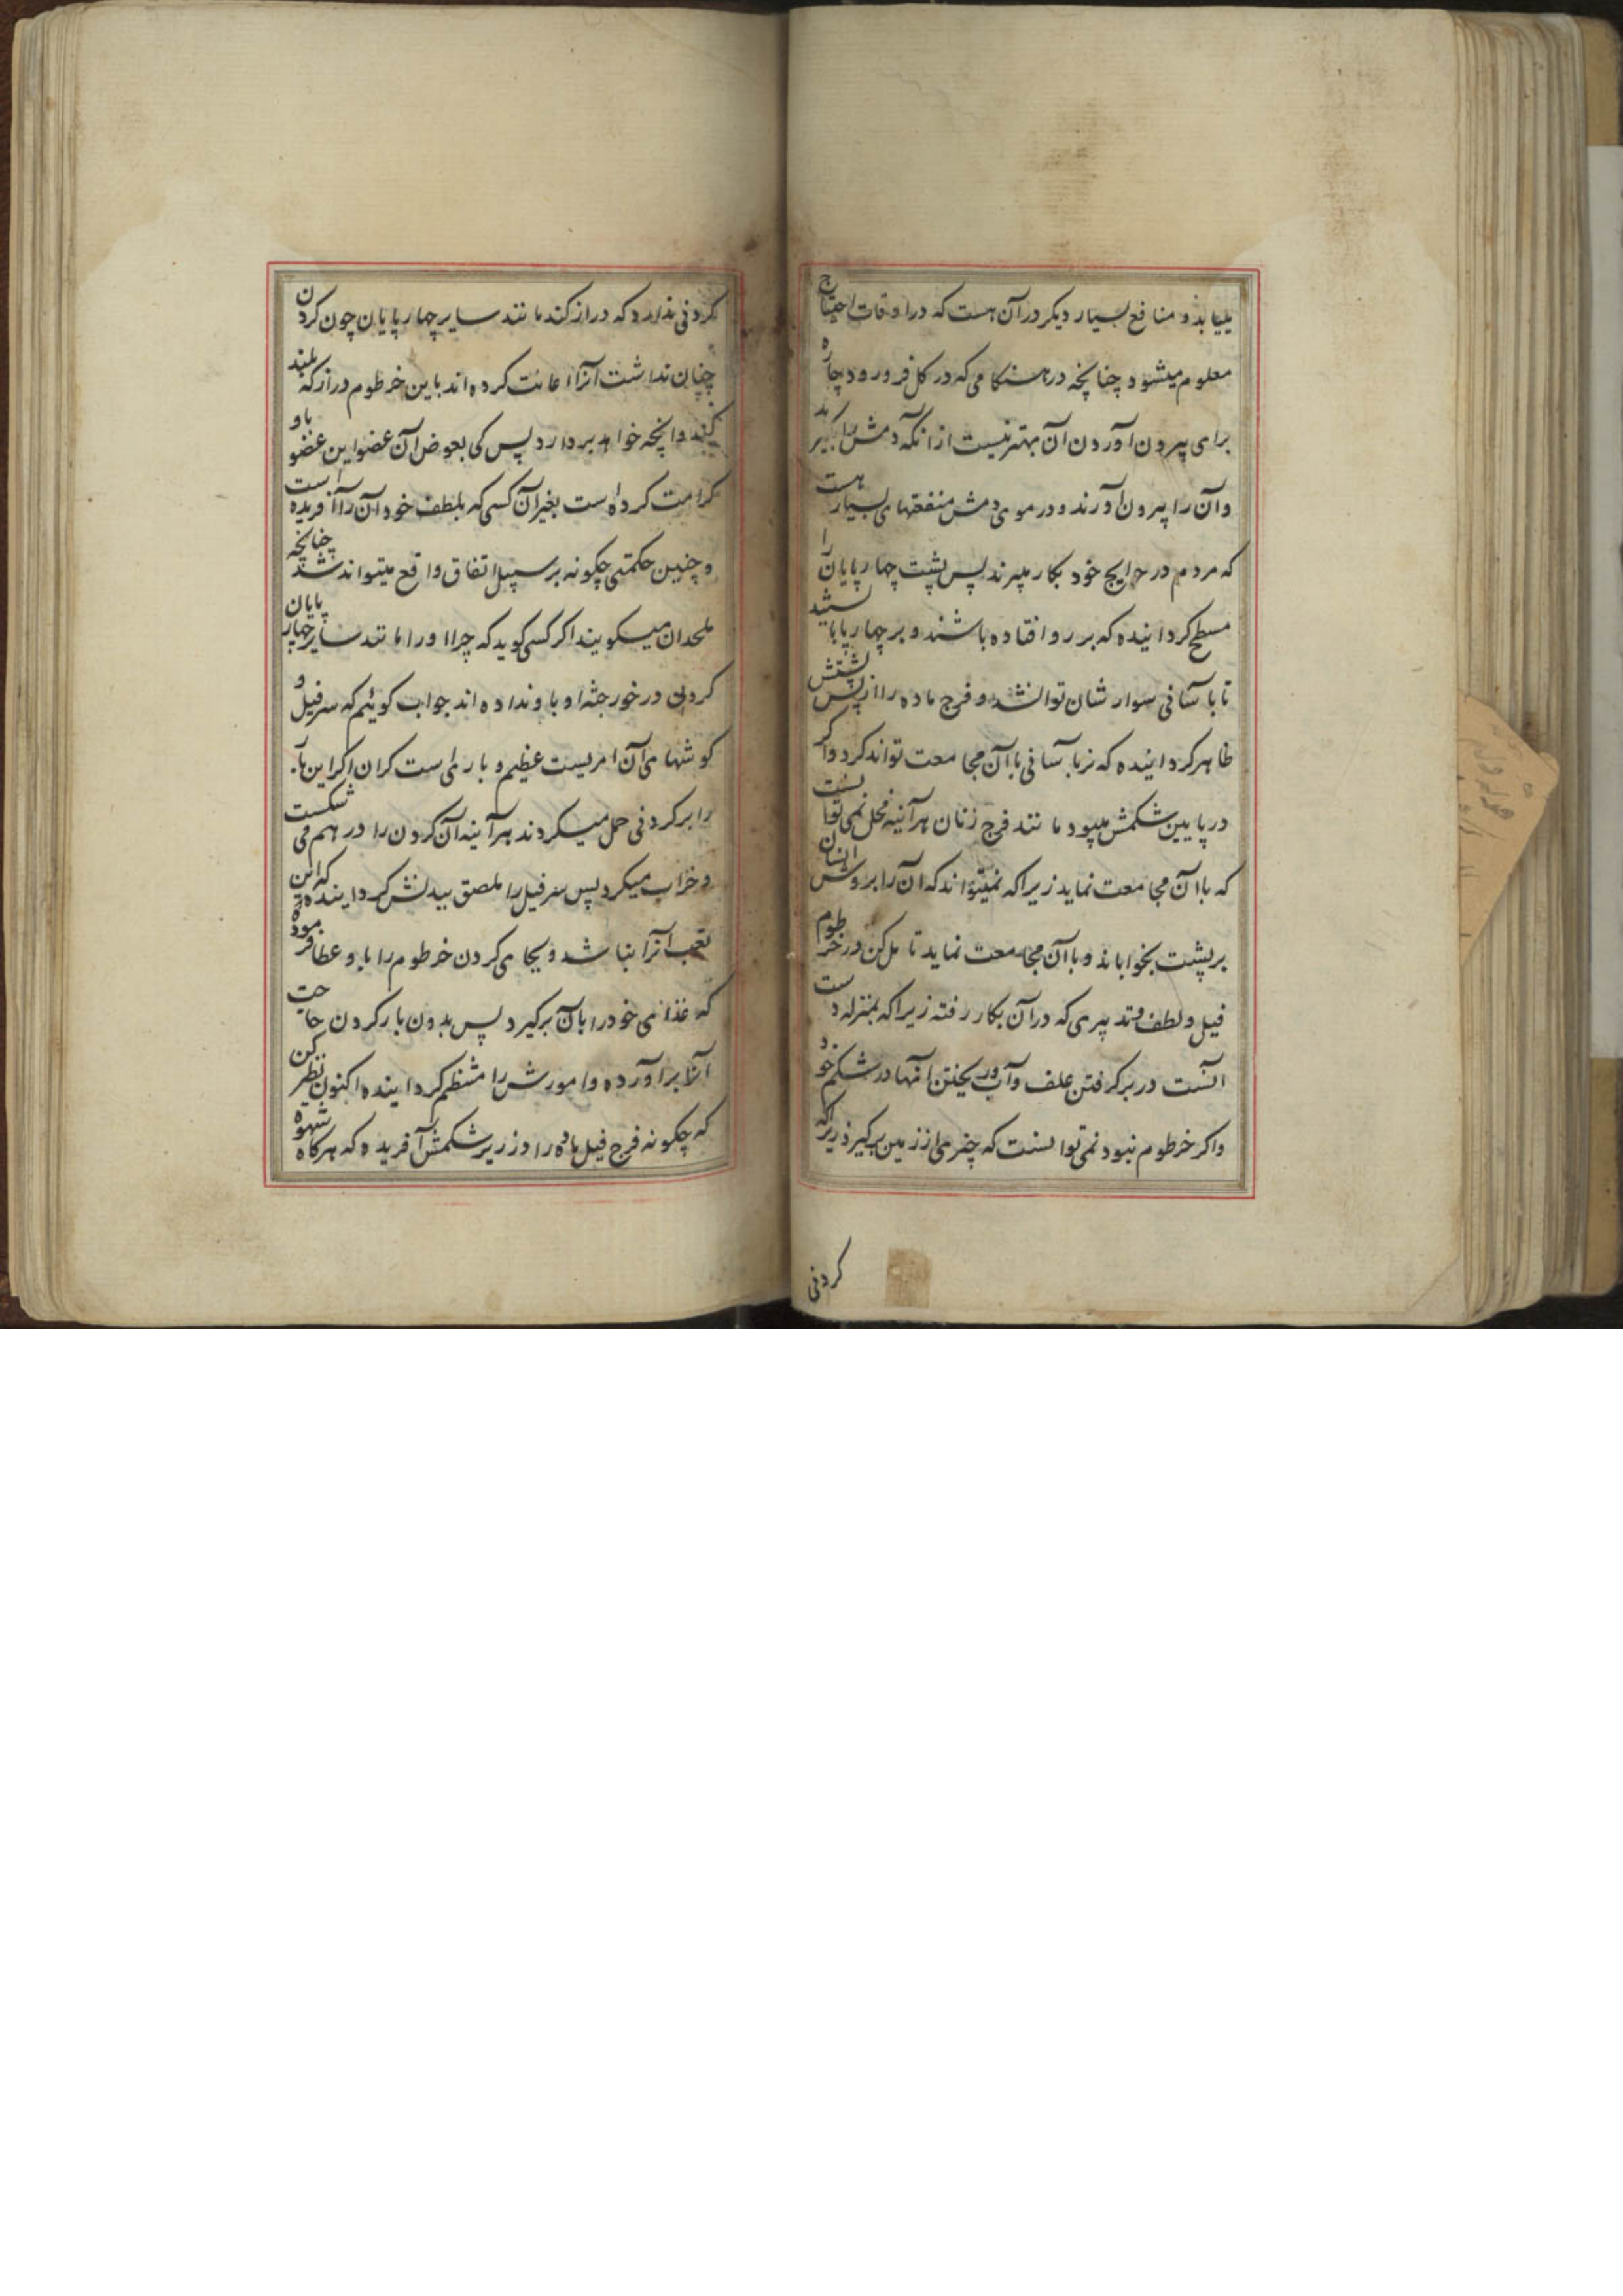 بییابد و منافع بسیار دیکر در آن هست که در اوقات احتیاج
معلوم میشود چنانچه در هنکامی که در کل فرو رود چاره
برای بیرون آوردن آن بهتر نیست از انکه دمش را بکیرند
و آن را بیرون آورند و در موی دمش منفعتهای بسیار هست
که مردم در حوایج خود بکار میبرند پس پشت چهارپایان را
مسطح کردانیده که بر رو افتاده باشند و بر چهار پا
تا باسآنی سوار شان توانشد و فرج ماده را از پس پشتش
ظاهر کردانیده که نر بآسانی با آن مجامعت تواند کرد و اکر
در پایین شکمش میبود مانند فرج زنان هرآینه فحل نمی توانست
که با آن مجامعت نماید زیرا که نمیتواند که آن را بروش انسان
بر پشت بخواباند و با آن مجامعت نماید تامل کن در خرطوم
فیل و لطف و تدبیری که در آن بکار رفته زیرا که بمنزله دست
انست در بر کرفتن علف و آب و ریختن آنها در شکم خود
و اکر خرطوم نبود نمی توانست که چیزی از زمین بر کیرد زیرا که
کردنی
کردنی ندارد که دراز کند مانند سایر چهارپایان چون کردن
چنان نداشت آنرا اعانت کرده اند باین خرطوم دراز که بلند
کند و انچه خواهد بردارد پس کی بعوض آن عضو این عضو باو
کرامت کرده است بغیر آن کسی که بلطف خود آن را آفریده است
و چنین حکمتی چکونه بر سبیل اتفاق واقع میتواند شد چنانچه
ملحدان میکویند اکر کسی کوید که چرا اورا مانند سایر چهار پایان
کردن در خور جثه او باو نداده اند جواب کوئیم که سر فیل و
کوشهای آن امریست عظیم و باریست کران اکر این بار
را بر کردنی حمل میکردند هرآینه آن کردن را در هم می شکست
و خراب میکرد پس سر فیل را ملصق ببدنش کردانیده که این
تعب آنرا نباشد و بجای کردن خرطوم را باو عطا فرموده
که غذای خود را بآن برکیرد پس بدون بار کردن حاجت
آنرا برآورده و امورش را منتظم کردانیده اکنون نظر کن
که چکونه فرج فیل ماده را در زیر شکمش آفریده که هرکاه شهوه